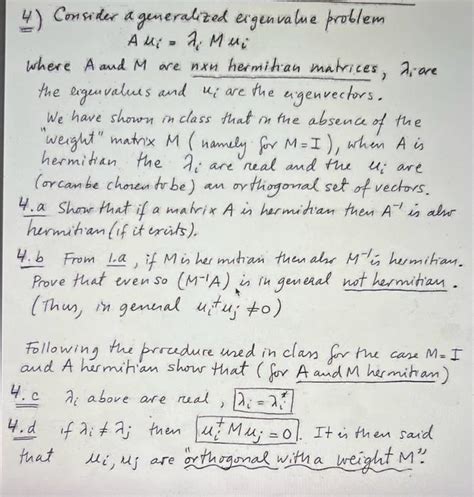 4) Consider a generalized eigenvalue problem
A uᵢ = λᵢ M uᵢ
where A and M are nxn hermitian matrices, λᵢ are
the eigenvalues and uᵢ are the eigenvectors.
We have shown in class that in the absence of the
"weight" matrix M (namely for M=I), when A is
hermitian the λᵢ are real and the uᵢ are
(or can be chosen to be) an orthogonal set of vectors.
4.a Show that if a matrix A is hermitian then A⁻¹ is also
hermitian (if it exists).
4.b From 1.a, if M is hermitian then also M⁻¹ is hermitian.
Prove that even so (M⁻¹A) is in general not hermitian.
(Thus, in general uᵢ†uⱼ ≠ 0)
Following the procedure used in class for the case M=I
and A hermitian show that (for A and M hermitian)
4.c λᵢ above are real, λᵢ = λᵢ*
4.d if λᵢ ≠ λⱼ then uᵢ†M uⱼ = 0. It is then said
that uᵢ, uⱼ are "orthogonal with a weight M".